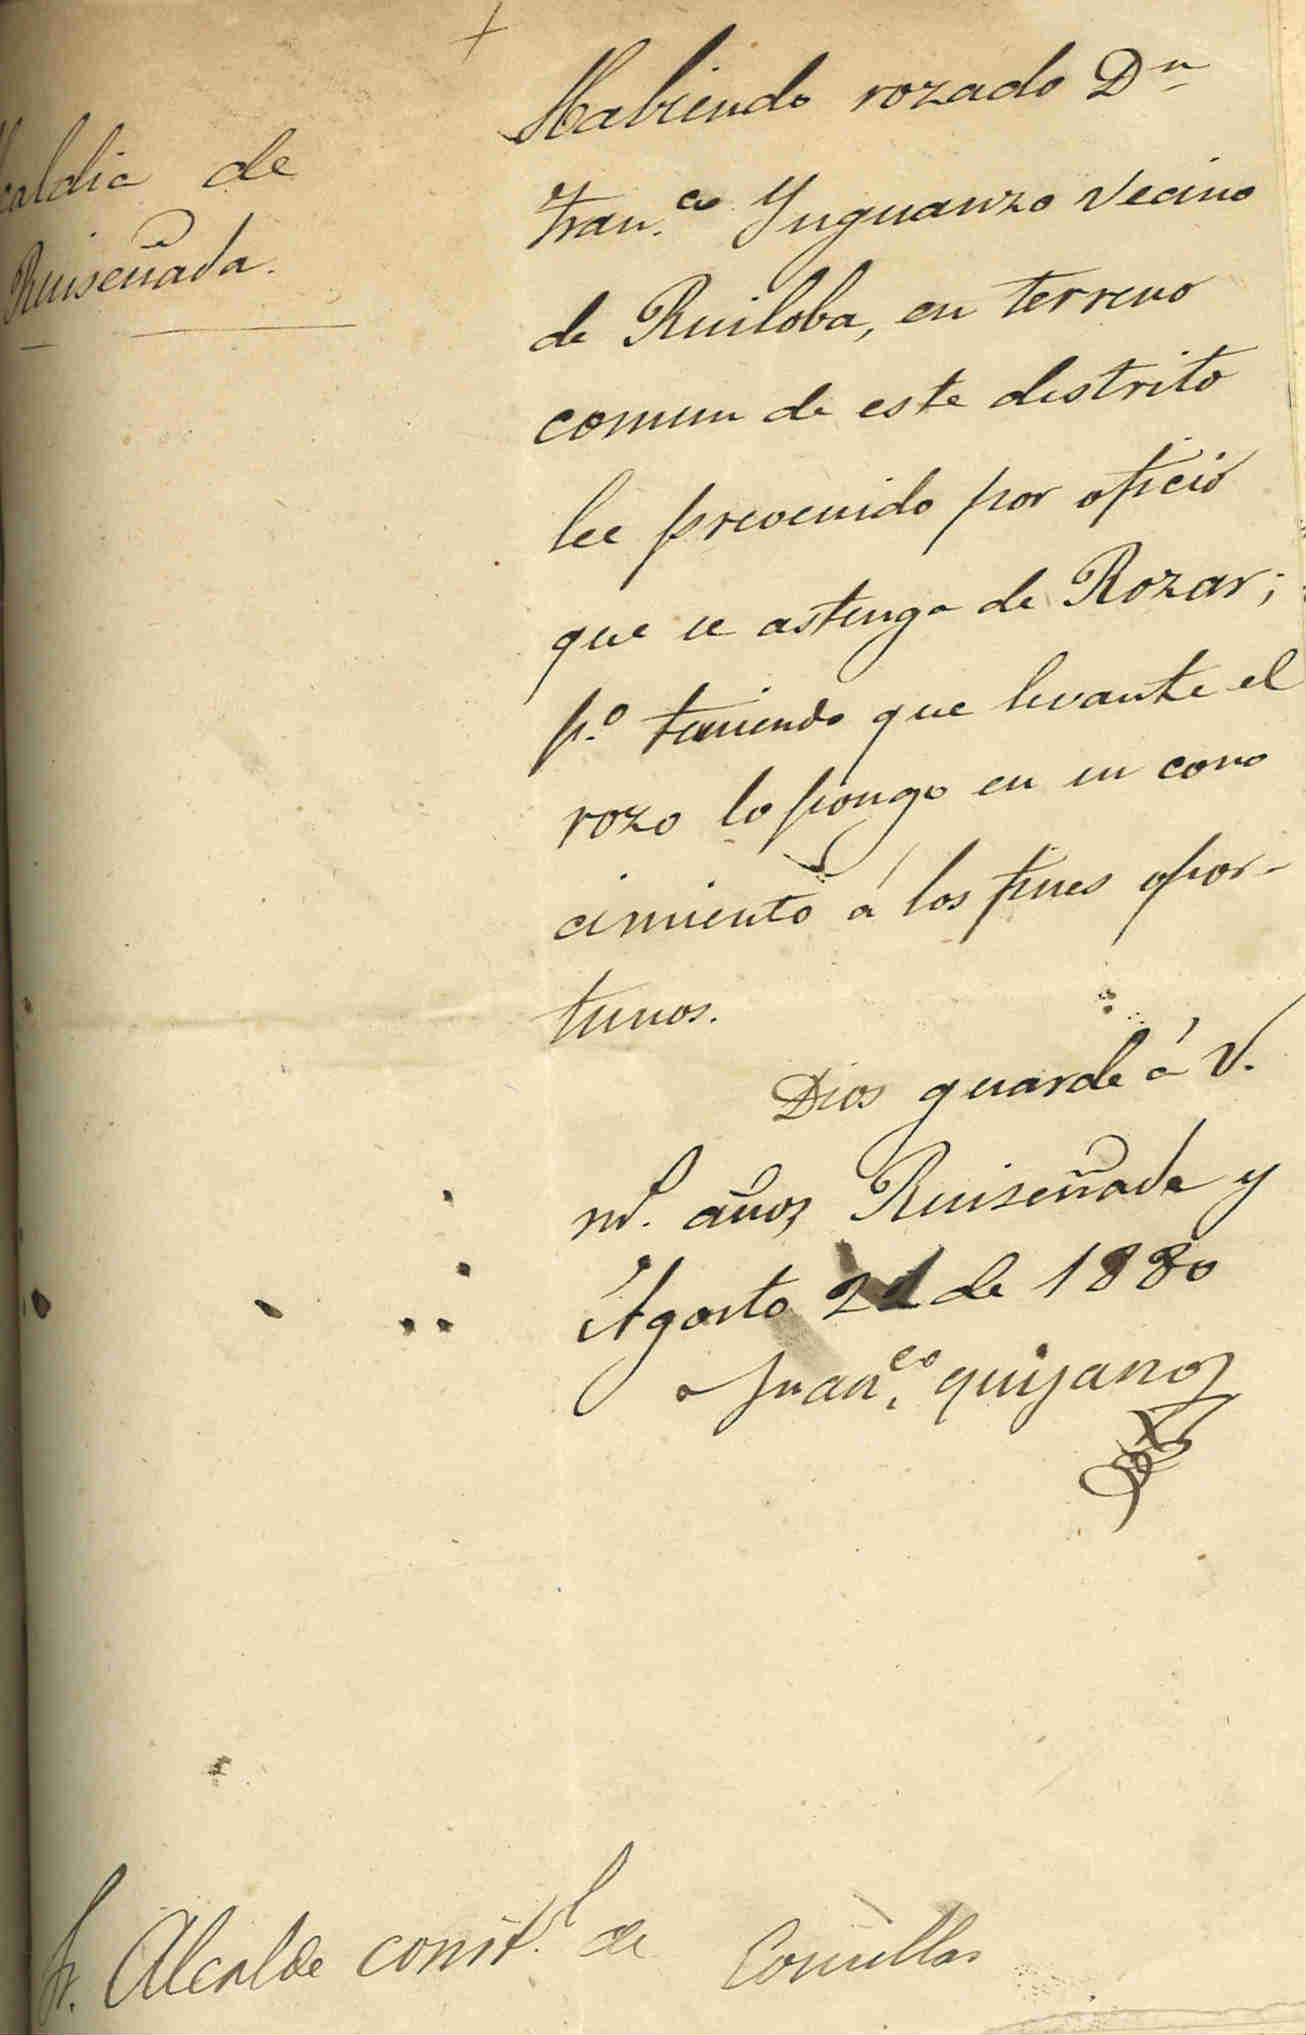 caldia de
Ruiseñada.
Habiendo rozado Dn
Fran.co Ynguanzo vecino
de Ruiloba, en terreno
comun de este distrito
lee prevenido por oficio
que se astenga de Rozar;
p.o temiendo que levante el
rozo lo pongo en su cono
cimiento á los fines opor-
tunos.
Dios guarde á V.
m.s años Ruiseñada y
Agosto 21 de 1880
Fran.co quijano
Sr. Alcalde const.l de Comillas